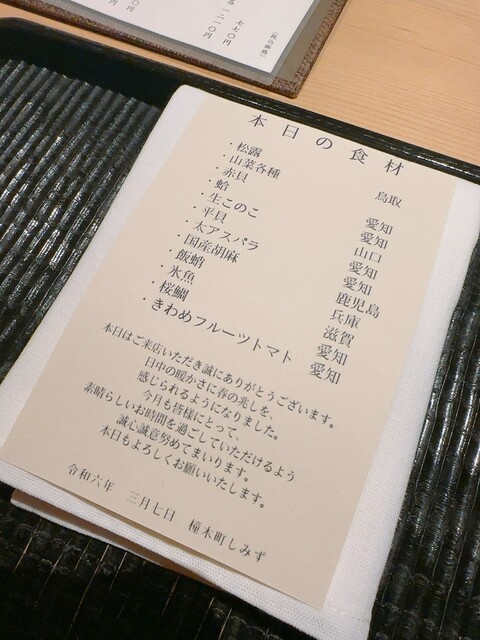 七七〇円
一二一〇円
本日の食材
・松露 鳥取
・山菜各種
・赤貝 愛知
・蛤 愛知
・生このこ 山口
・平貝 愛知
・太アスパラ 愛知
・国産胡麻 鹿児島
・飯蛸 兵庫
・氷魚 滋賀
・桜鯛 愛知
・きわめフルーツトマト 愛知
本日はご来店いただき誠にありがとうございます。
日中の暖かさに春の兆しを、
感じられるようになりました。
今月も皆様にとって、
素晴らしいお時間を過ごしていただけるよう
誠心誠意努めてまいります。
本日もよろしくお願いいたします。
令和六年 三月七日 橦木町しみず